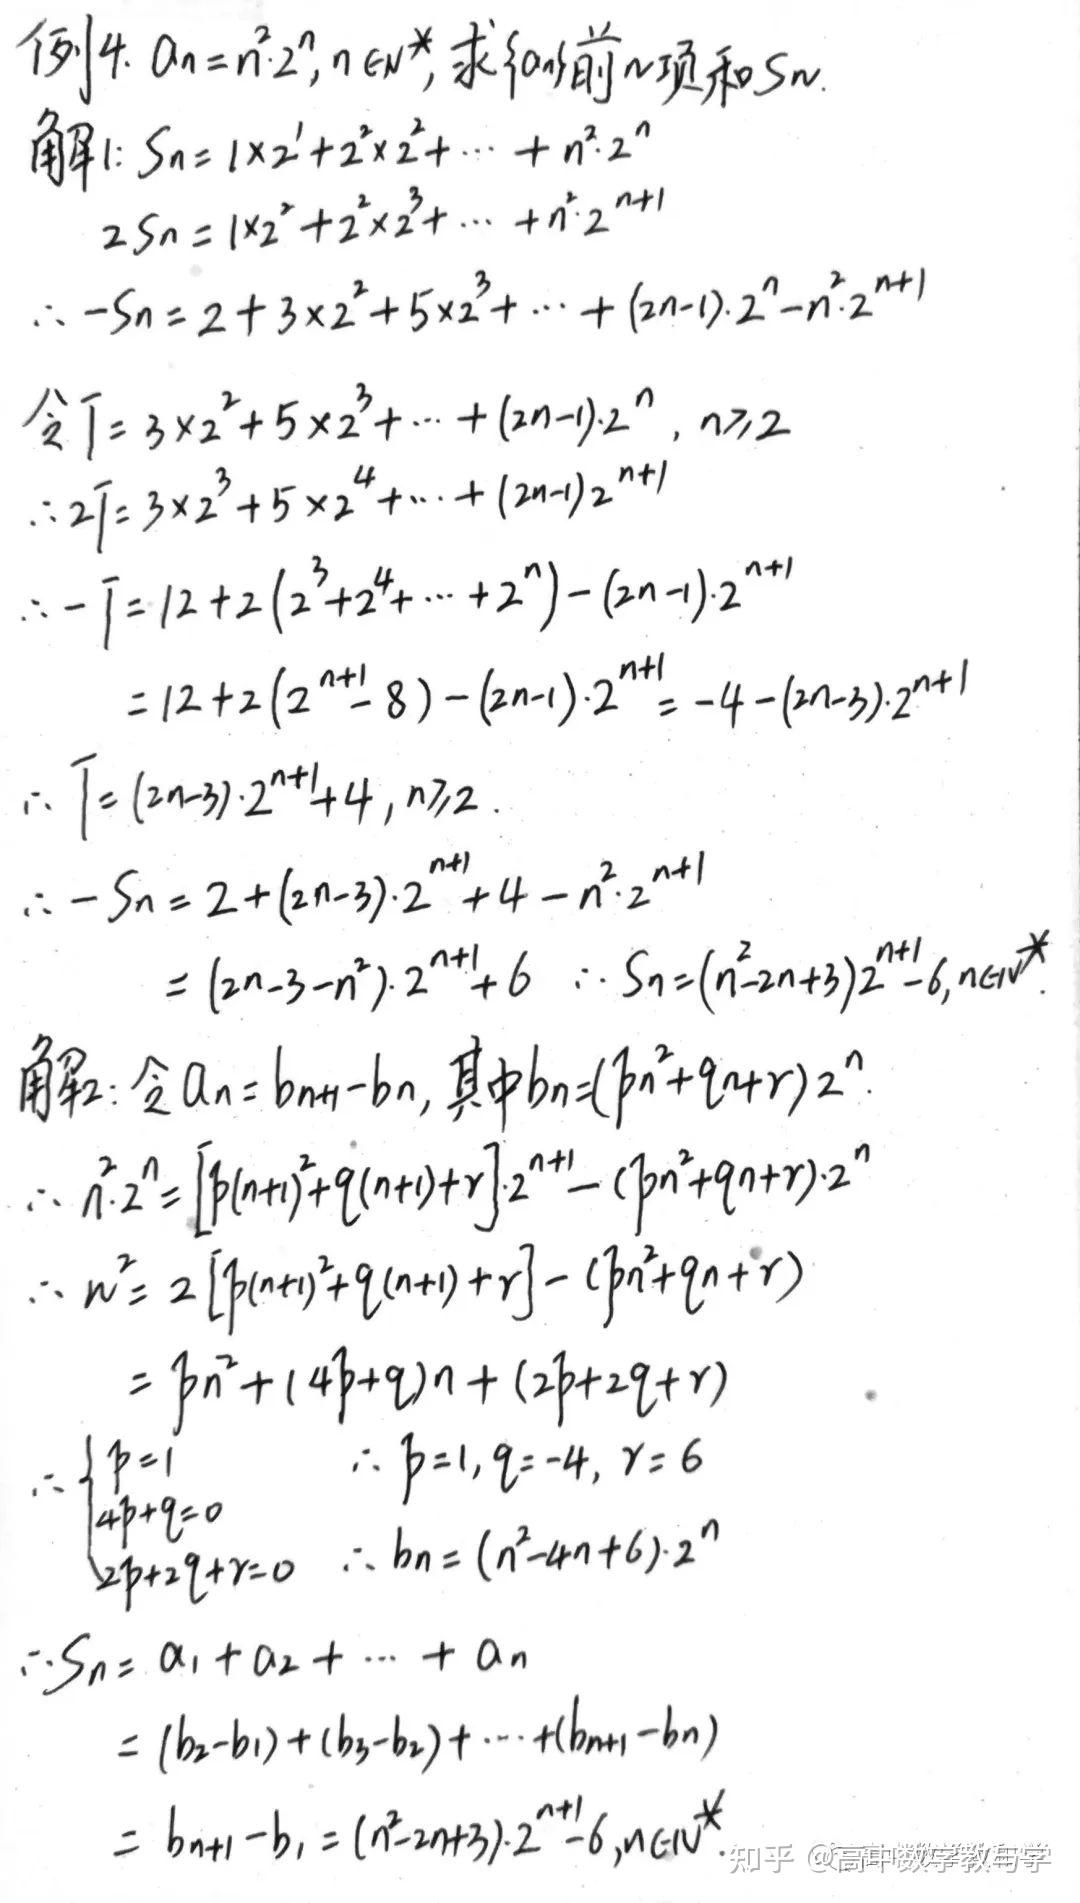 例4. aₙ=n²·2ⁿ, n∈N*, 求{aₙ}前n项和Sₙ.
解1: Sₙ=1×2¹+2²×2²+⋯+n²·2ⁿ
2Sₙ=1×2²+2²×2³+⋯+n²·2ⁿ⁺¹
∴-Sₙ=2+3×2²+5×2³+⋯+(2n-1)·2ⁿ-n²·2ⁿ⁺¹
令T=3×2²+5×2³+⋯+(2n-1)·2ⁿ, n≥2
∴2T=3×2³+5×2⁴+⋯+(2n-1)2ⁿ⁺¹
∴-T=12+2(2³+2⁴+⋯+2ⁿ)-(2n-1)·2ⁿ⁺¹
=12+2(2ⁿ⁺¹-8)-(2n-1)·2ⁿ⁺¹=-4-(2n-3)·2ⁿ⁺¹
∴T=(2n-3)·2ⁿ⁺¹+4, n≥2.
∴-Sₙ=2+(2n-3)·2ⁿ⁺¹+4-n²·2ⁿ⁺¹
=(2n-3-n²)·2ⁿ⁺¹+6 ∴Sₙ=(n²-2n+3)2ⁿ⁺¹-6, n∈N*.
解2: 令aₙ=bₙ₊₁-bₙ, 其中bₙ=(pn²+qn+r)2ⁿ.
∴n²·2ⁿ=[p(n+1)²+q(n+1)+r]·2ⁿ⁺¹-(pn²+qn+r)·2ⁿ
∴n²=2[p(n+1)²+q(n+1)+r]-(pn²+qn+r)
=pn²+(4p+q)n+(2p+2q+r)
∴{p=1 ∴p=1, q=-4, r=6
4p+q=0
2p+2q+r=0 ∴bₙ=(n²-4n+6)·2ⁿ
∴Sₙ=a₁+a₂+⋯+aₙ
=(b₂-b₁)+(b₃-b₂)+⋯+(bₙ₊₁-bₙ)
=bₙ₊₁-b₁=(n²-2n+3)·2ⁿ⁺¹-6, n∈N*.
知乎 @高中数学教与学